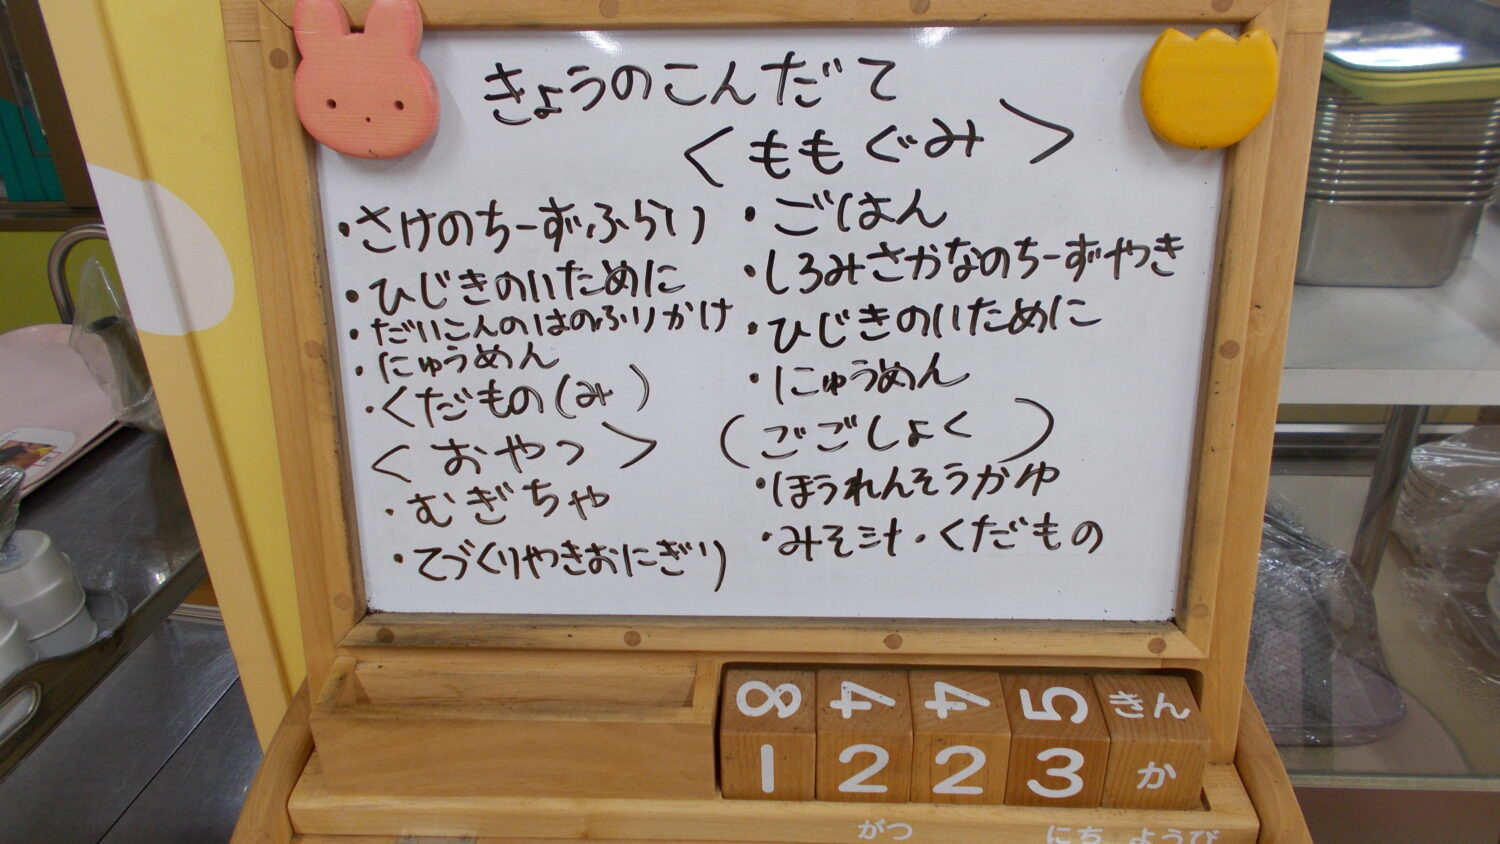 きょうのこんだて
<ももぐみ>
・さけのちーずふらい
・ひじきのいために
・だいこんのはのふりかけ
・にゅうめん
・くだもの(み )
<おやつ>
・むぎちゃ
・てづくりやきおにぎり
・ごはん
・しろみさかなのちーずやき
・ひじきのいために
・にゅうめん
(ごごしょく )
・ほうれんそうかゆ
・みそ汁・くだもの
8 4 4 5 きん
1 2 2 3 か
がつ にち ようび